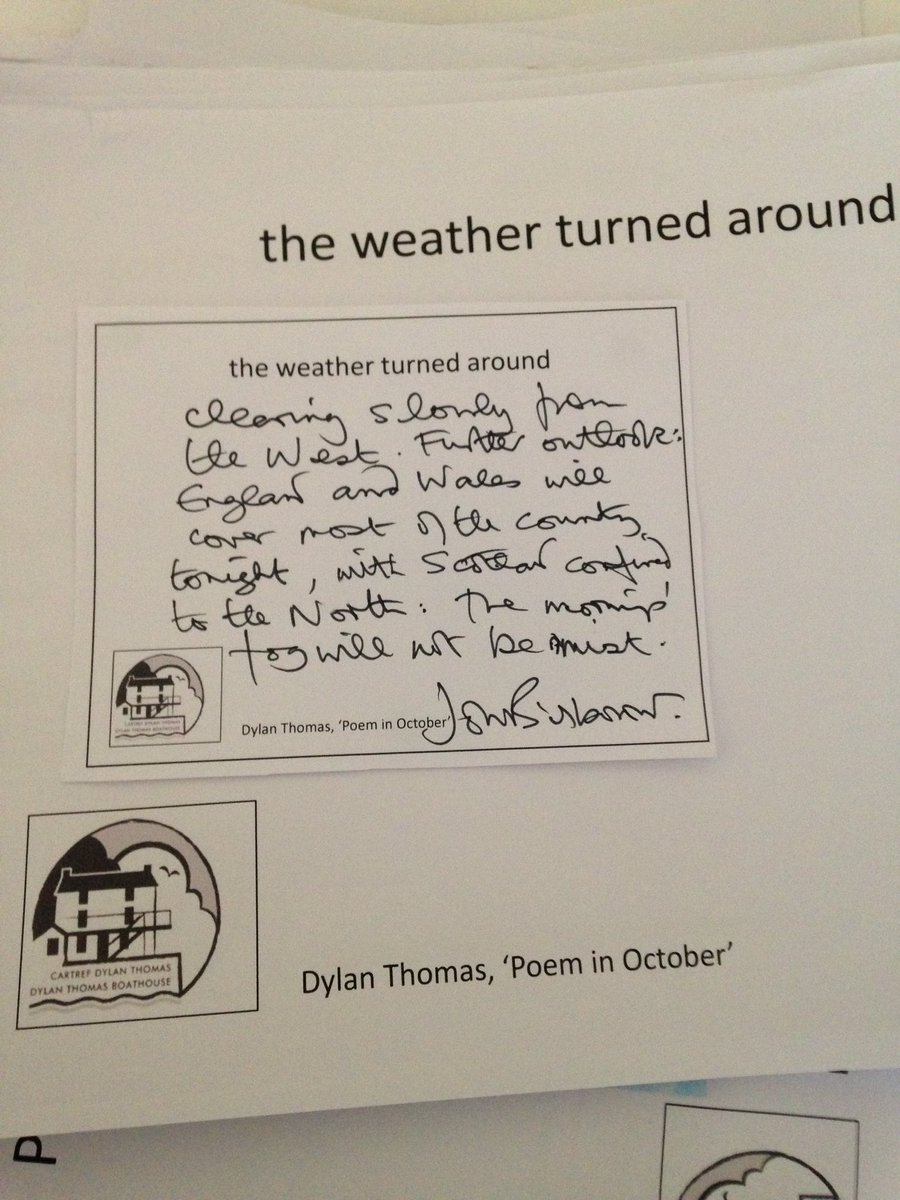 the weather turned around
the weather turned around
clearing slowly from
the West. Further outlook:
England and Wales will
cover most of the country
tonight, with Scotland confined
to the North: The morning
fog will not be mist.
Dylan Thomas, 'Poem in October'
CARTREF DYLAN THOMAS
DYLAN THOMAS BOATHOUSE
CARTREF DYLAN THOMAS
DYLAN THOMAS BOATHOUSE
Dylan Thomas, 'Poem in October'
P